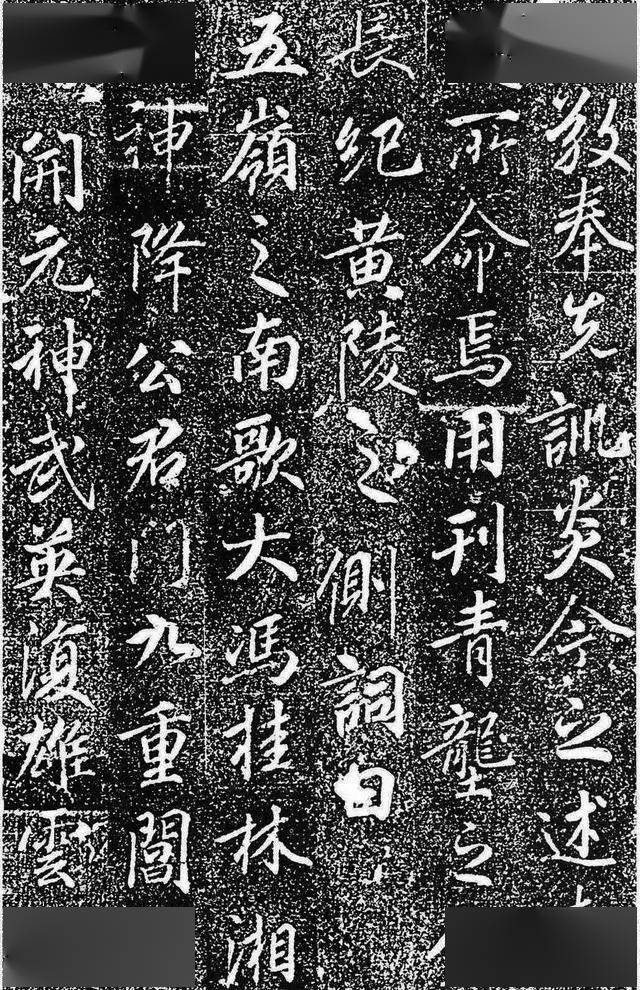 敬奉先訓炎今之述
所命焉用刊青壟之
長紀黄陵之側詞曰
五嶺之南歌大馮桂林湘
神降公君門九重閶
開元神武英復雄雲